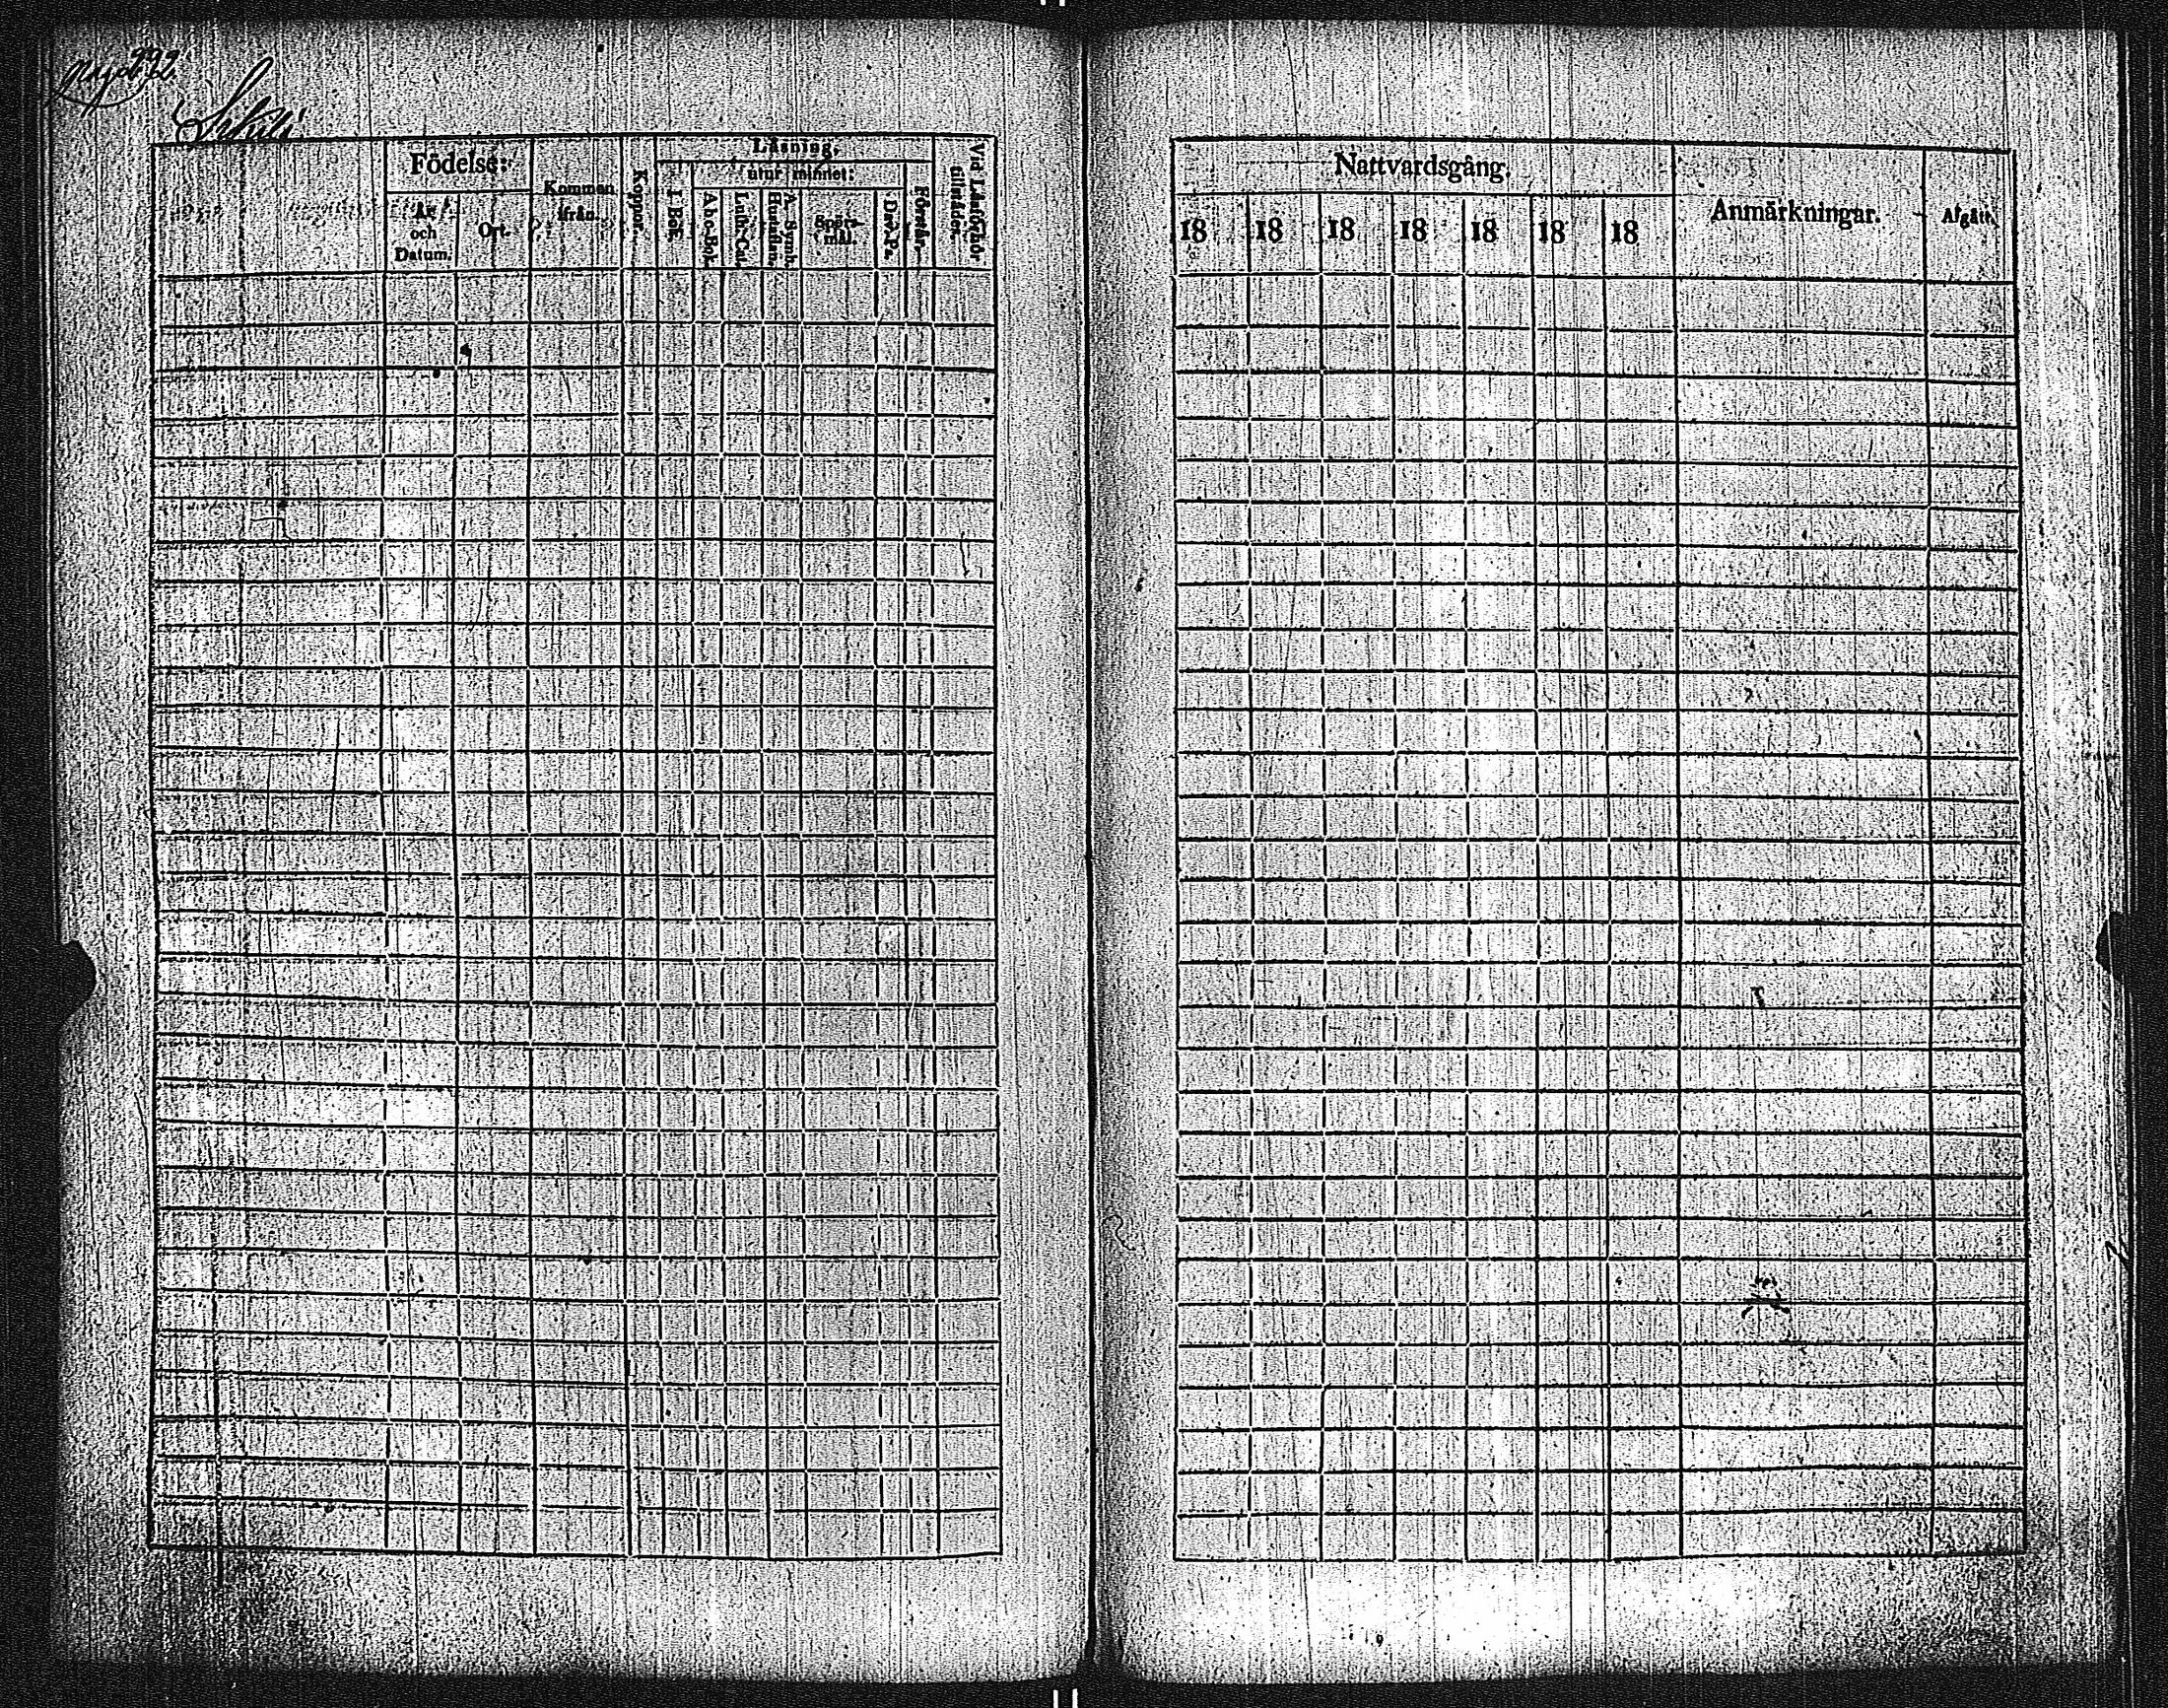 292.
Födelse:
År och Datum.
Ort.
Kommen ifrån.
Koppor.
Läsning.
utur minnet:
I Bok.
Abc-Bok.
Luth. Cat.
A. Symb. Hustaflan.
Spörsmål.
Dav. Ps.
Förstår.
Vid Läsförhör tillstädes.
Nattvardsgång.
18 18 18 18 18 18 18
Anmärkningar.
Afgått.